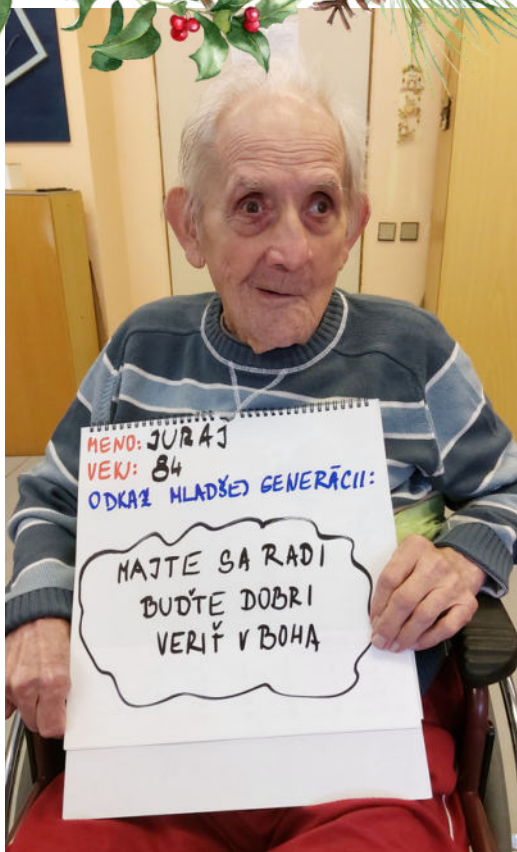 MENO: JURAJ
VEK: 84
ODKAZ MLADŠEJ GENERÁCII:
MAJTE SA RADI
BUĎTE DOBRI
VERIŤ V BOHA